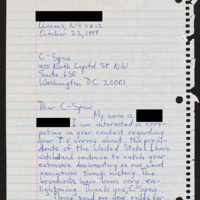 Queens, NY 11412
October 22, 1999
C-Span
400 North Capitol St NW
Suite 650
Washington D.C. 20001
Dear C-Span:
My name is
I am interested in
pating in your contest regarding
your T.V. series about the presi-
dents of the United States. I have
watched and continue to watch your
extensive documentary on our chief
executives through history. The
broadcasts have been very en-
lightening. Thank you, C-Span.
Please send me your rules for